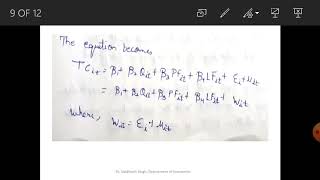 9 OF 12
The equation becomes
TCit = β1 + β2 Qit + β3 PFit + β4 LFit + Ei + uit
= β1 + β2 Qit + β3 PFit + β4 LFit + Wit
where, Wit = Ei + uit
Singh, Department of Economics